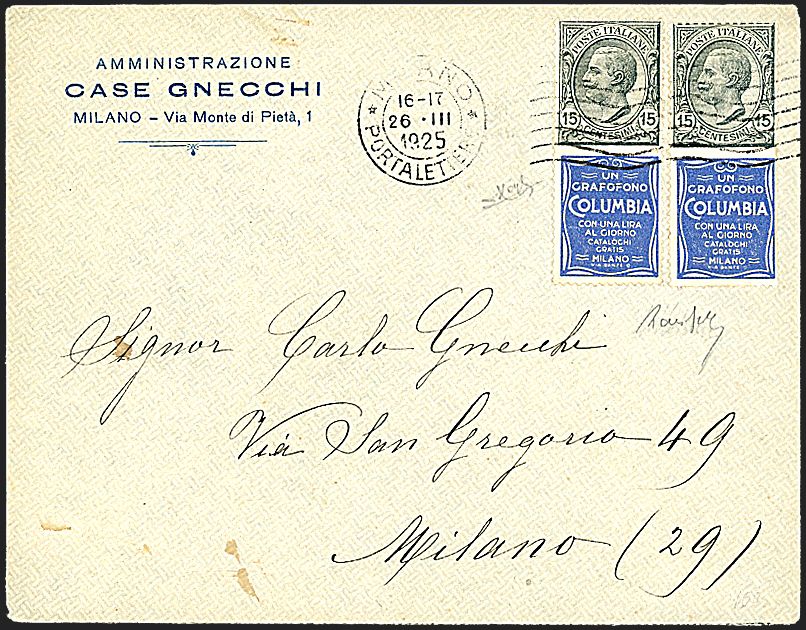 AMMINISTRAZIONE
CASE GNECCHI
MILANO – Via Monte di Pietà, 1
MILANO
16-17
26 · III
1925
PORTALETTERE
POSTE ITALIANE
15 15
CENTESIMI
POSTE ITALIANE
15 15
CENTESIMI
UN
GRAFOFONO
COLUMBIA
CON UNA LIRA
AL GIORNO
CATALOGHI
GRATIS
MILANO
VIA DANTE 9
UN
GRAFOFONO
COLUMBIA
CON UNA LIRA
AL GIORNO
CATALOGHI
GRATIS
MILANO
VIA DANTE 9
Signor Carlo Gnecchi
Via San Gregorio 49
Milano (29)